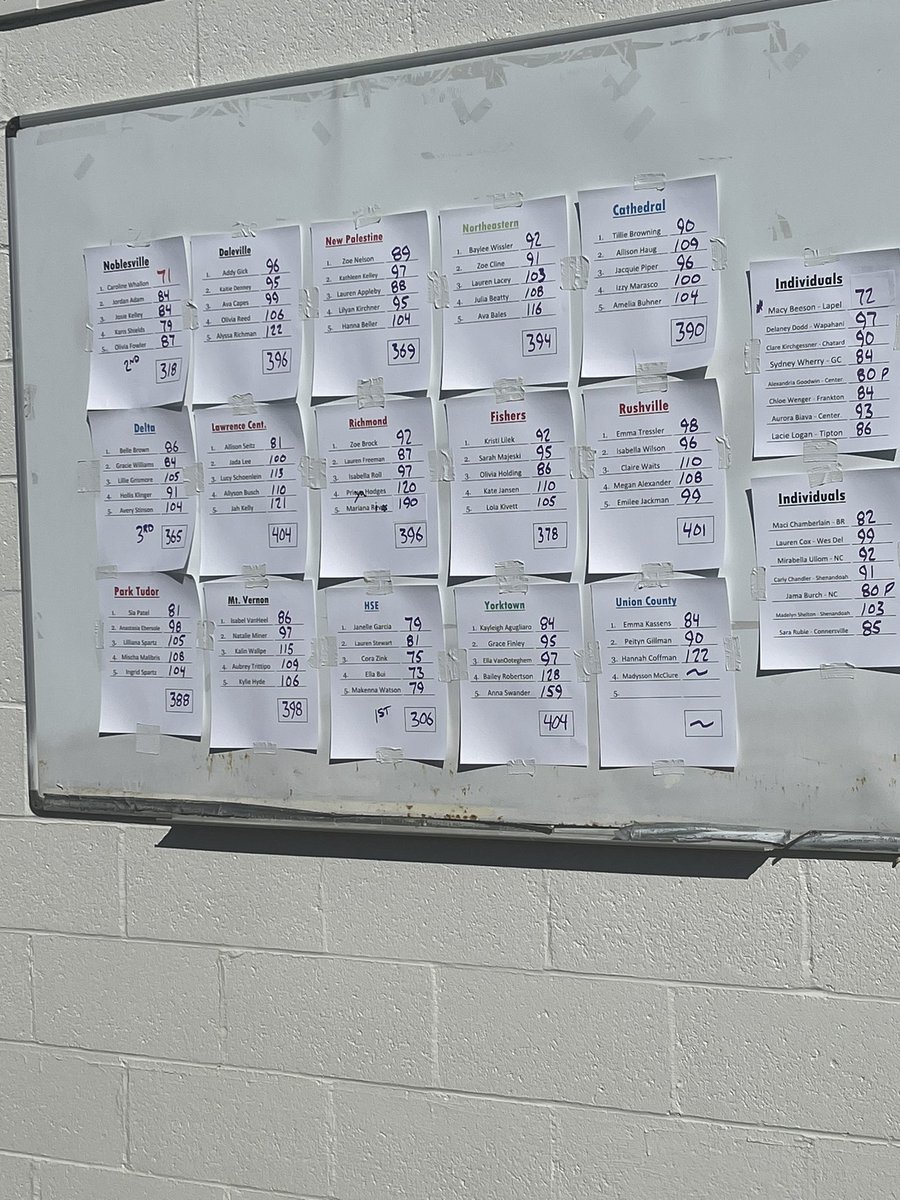 Noblesville
1. Caroline Whallon 71
2. Jordan Adam 84
3. Josie Kelley 84
4. Kans Shields 79
5. Olivia Fowler 87
2ND 318
Daleville
1. Addy Gick 96
2. Kaitie Denney 95
3. Ava Capes 99
4. Olivia Reed 106
5. Alyssa Richman 122
396
New Palestine
1. Zoe Nelson 89
2. Kathleen Kelley 97
3. Lauren Appleby 88
4. Lilyan Kirchner 95
5. Hanna Beller 104
369
Northeastern
1. Baylee Wissler 92
2. Zoe Cline 91
3. Lauren Lacey 103
4. Julia Beatty 108
5. Ava Bales 116
394
Cathedral
1. Tillie Browning 90
2. Allison Haug 109
3. Jacquie Piper 96
4. Izzy Marasco 100
5. Amelia Buhner 104
390
Individuals
* Macy Beeson - Lapel 72
Delaney Dodd - Wapahani 97
Clare Kirchgessner - Chatard 90
Sydney Wherry - GC 84
Alexandria Goodwin - Center. 80 P
Chloe Wenger - Frankton 84
Aurora Biava - Center 93
Lacie Logan - Tipton 86
Delta
1. Belle Brown 86
2. Gracie Williams 84
3. Lillie Grismore 105
4. Hollis Klinger 91
5. Avery Stinson 104
3RD 365
Lawrence Cent.
1. Allison Seitz 81
2. Jada Lee 100
3. Lucy Schoenlein 113
4. Allyson Busch 110
5. Jah Kelly 121
404
Richmond
1. Zoe Brock 92
2. Lauren Freeman 87
3. Isabella Roll 97
4. Hodges 120
5. Mariana 190
396
Fishers
1. Kristi Lilek 92
2. Sarah Majeski 95
3. Olivia Holding 86
4. Kate Jansen 110
5. Lola Kivett 105
378
Rushville
1. Emma Tressler 98
2. Isabella Wilson 96
3. Claire Waits 110
4. Megan Alexander 108
5. Emilee Jackman 99
401
Individuals
Maci Chamberlain - BR 82
Lauren Cox - Wes Del 99
Mirabella Ullom - NC 92
Carly Chandler - Shenandoah 91
Jama Burch - NC 80 P
Madelyn Shelton - Shenandoah 103
Sara Rubie - Connersville 85
Park Tudor
1. Sia Patel 81
2. Anastasia Ebersole 98
3. Lilliana Spartz 105
4. Mischa Malibris 108
5. Ingrid Spartz 104
388
Mt. Vernon
1. Isabel VanHeel 86
2. Natalie Miner 97
3. Kalin Wallpe 115
4. Aubrey Trittipo 109
5. Kylie Hyde 106
398
HSE
1. Janelle Garcia 79
2. Lauren Stewart 81
3. Cora Zink 75
4. Ella Bui 73
5. Makenna Watson 79
1ST 306
Yorktown
1. Kayleigh Agugliaro 84
2. Grace Finley 95
3. Ella VanOoteghem 97
4. Bailey Robertson 128
5. Anna Swander 159
404
Union County
1. Emma Kassens 84
2. Peityn Gillman 90
3. Hannah Coffman 122
4. Madysson McClure ~
5.
~